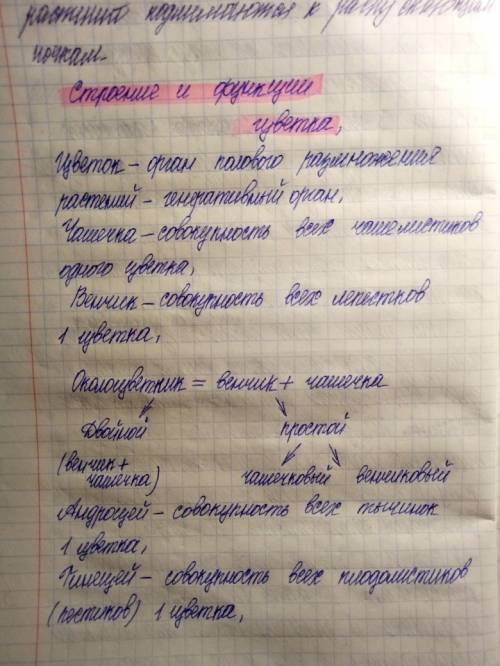 растений поднимаются к распускающим
почкам.
Строение и функции
цветка.
Цветок – орган полового размножения
растений – генеративный орган.
Чашечка – совокупность всех чашелистиков
одного цветка.
Венчик – совокупность всех лепестков
1 цветка.
Околоцветник = венчик + чашечка
Двойной простой
(венчик +
чашечка) чашечковый венчиковый
Андроцей – совокупность всех тычинок
1 цветка.
Гинецей – совокупность всех плодолистиков
(пестиков) 1 цветка.